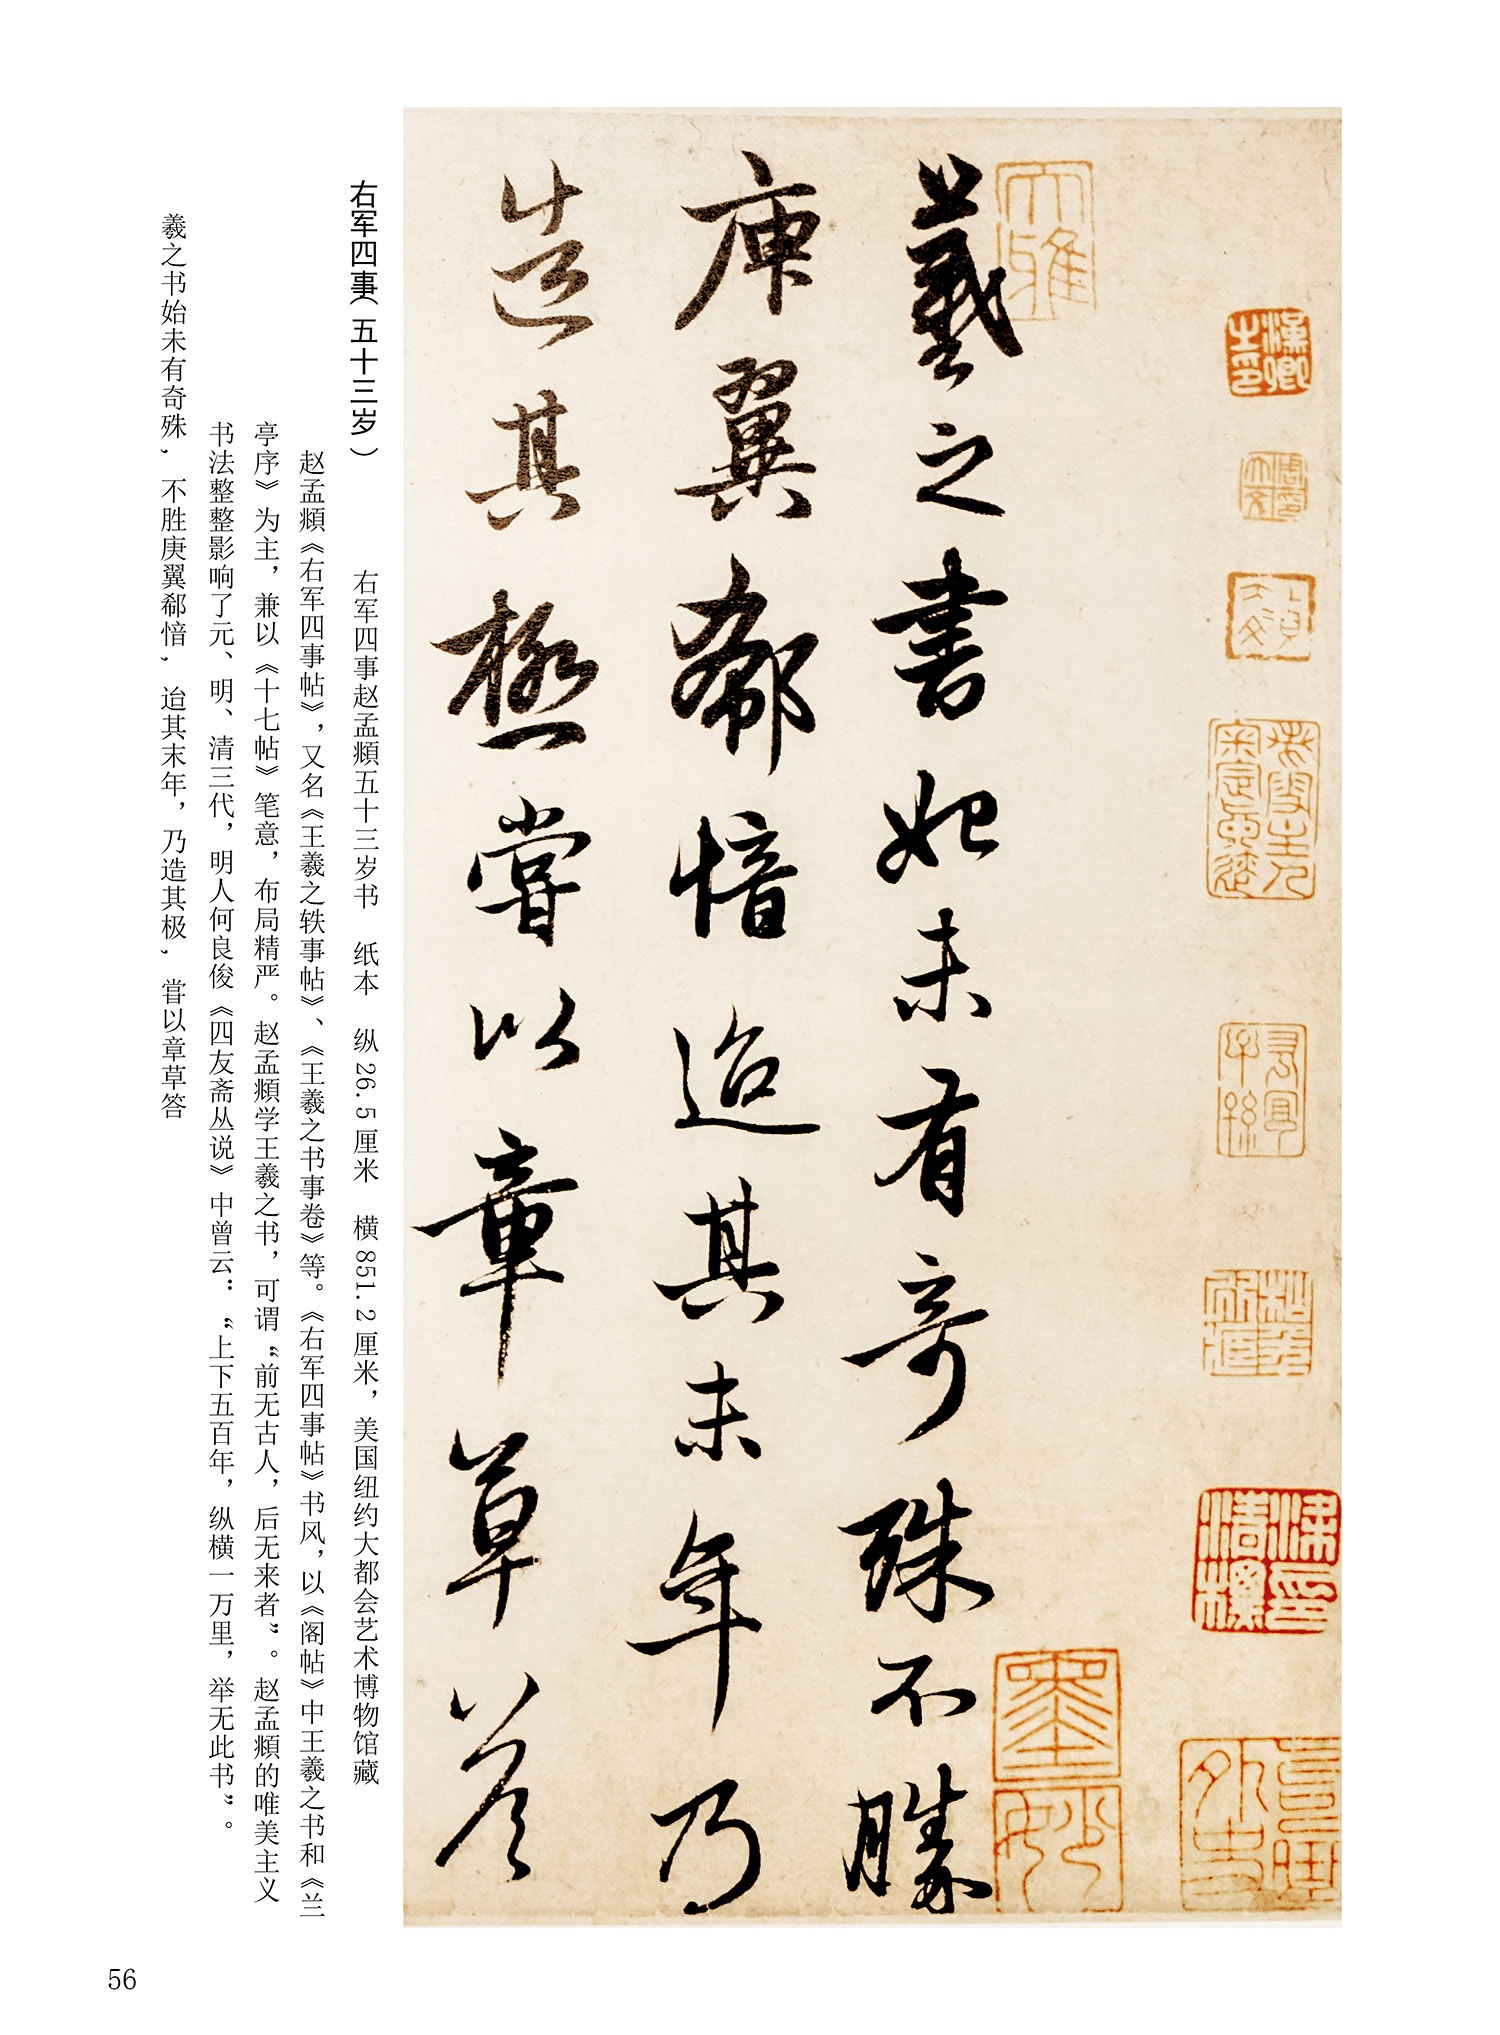 羲之書始未有奇殊不勝
庾翼郗愔迨其末年乃
造其極嘗以章草答
右军四事（五十三岁）
右军四事赵孟頫五十三岁书 纸本 纵26.5厘米 横851.2厘米，美国纽约大都会艺术博物馆藏
赵孟頫《右军四事帖》，又名《王羲之轶事帖》、《王羲之书事卷》等。《右军四事帖》书风，以《阁帖》中王羲之书和《兰
亭序》为主，兼以《十七帖》笔意，布局精严。赵孟頫学王羲之书，可谓“前无古人，后无来者”。赵孟頫的唯美主义
书法整整影响了元、明、清三代，明人何良俊《四友斋丛说》中曾云：“上下五百年，纵横一万里，举无此书”。
羲之书始未有奇殊，不胜庚翼郗愔，迨其末年，乃造其极，甞以章草答
56